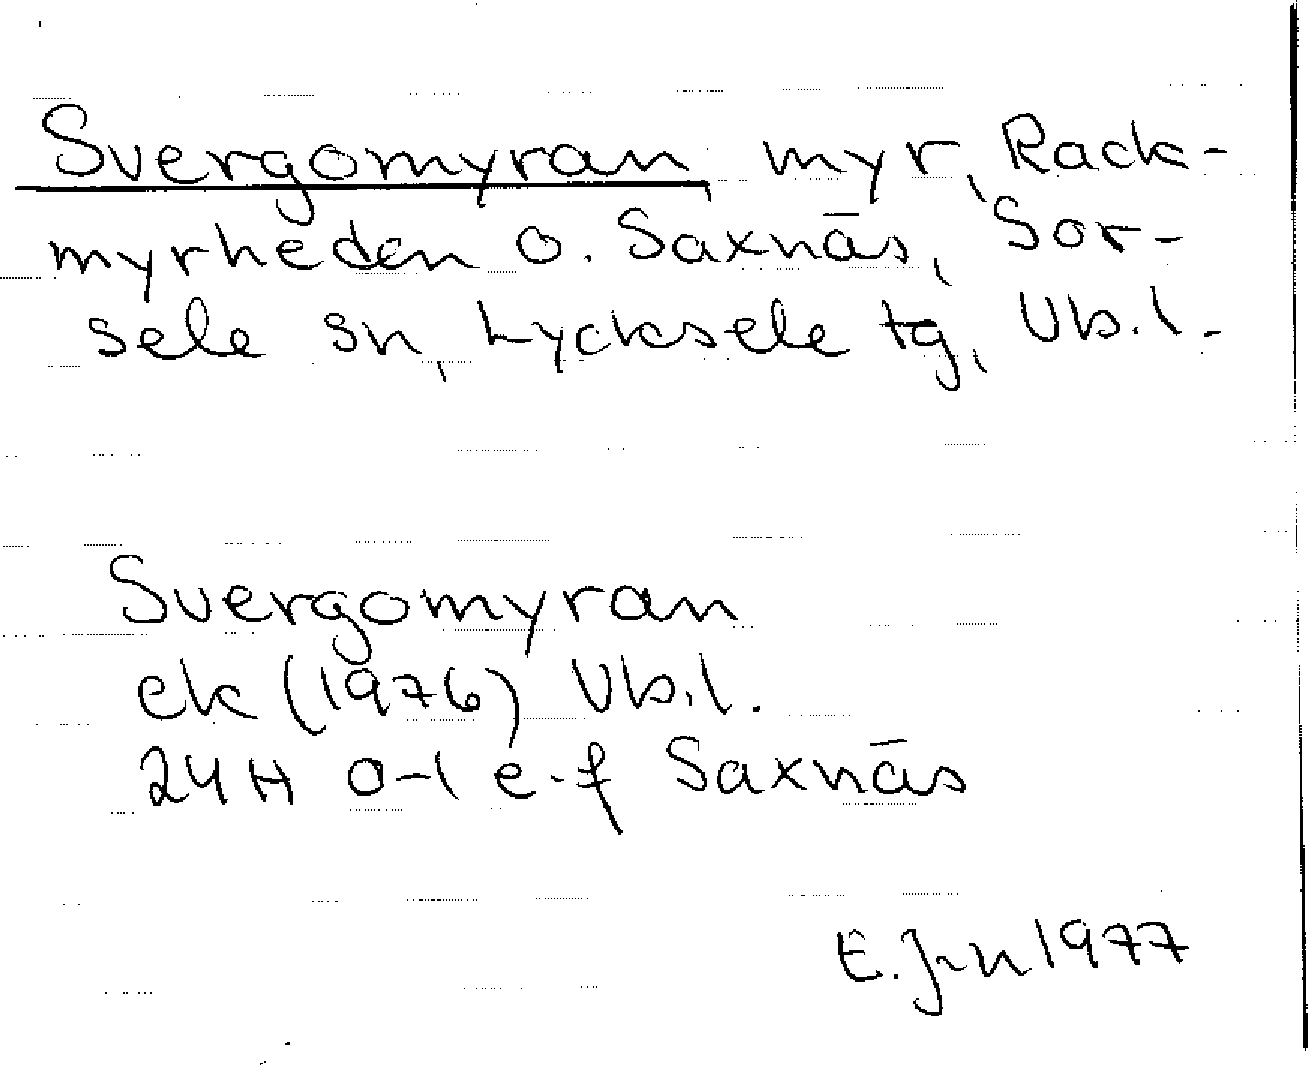 Svergomyran myr, Rack-
myrheden o. Saxnäs, Sor-
sele sn, Lycksele tg, Vb.l.
Svergomyran
ek (1976) Vb.l.
24H 0-1 e-f Saxnäs
E. J-n 1977